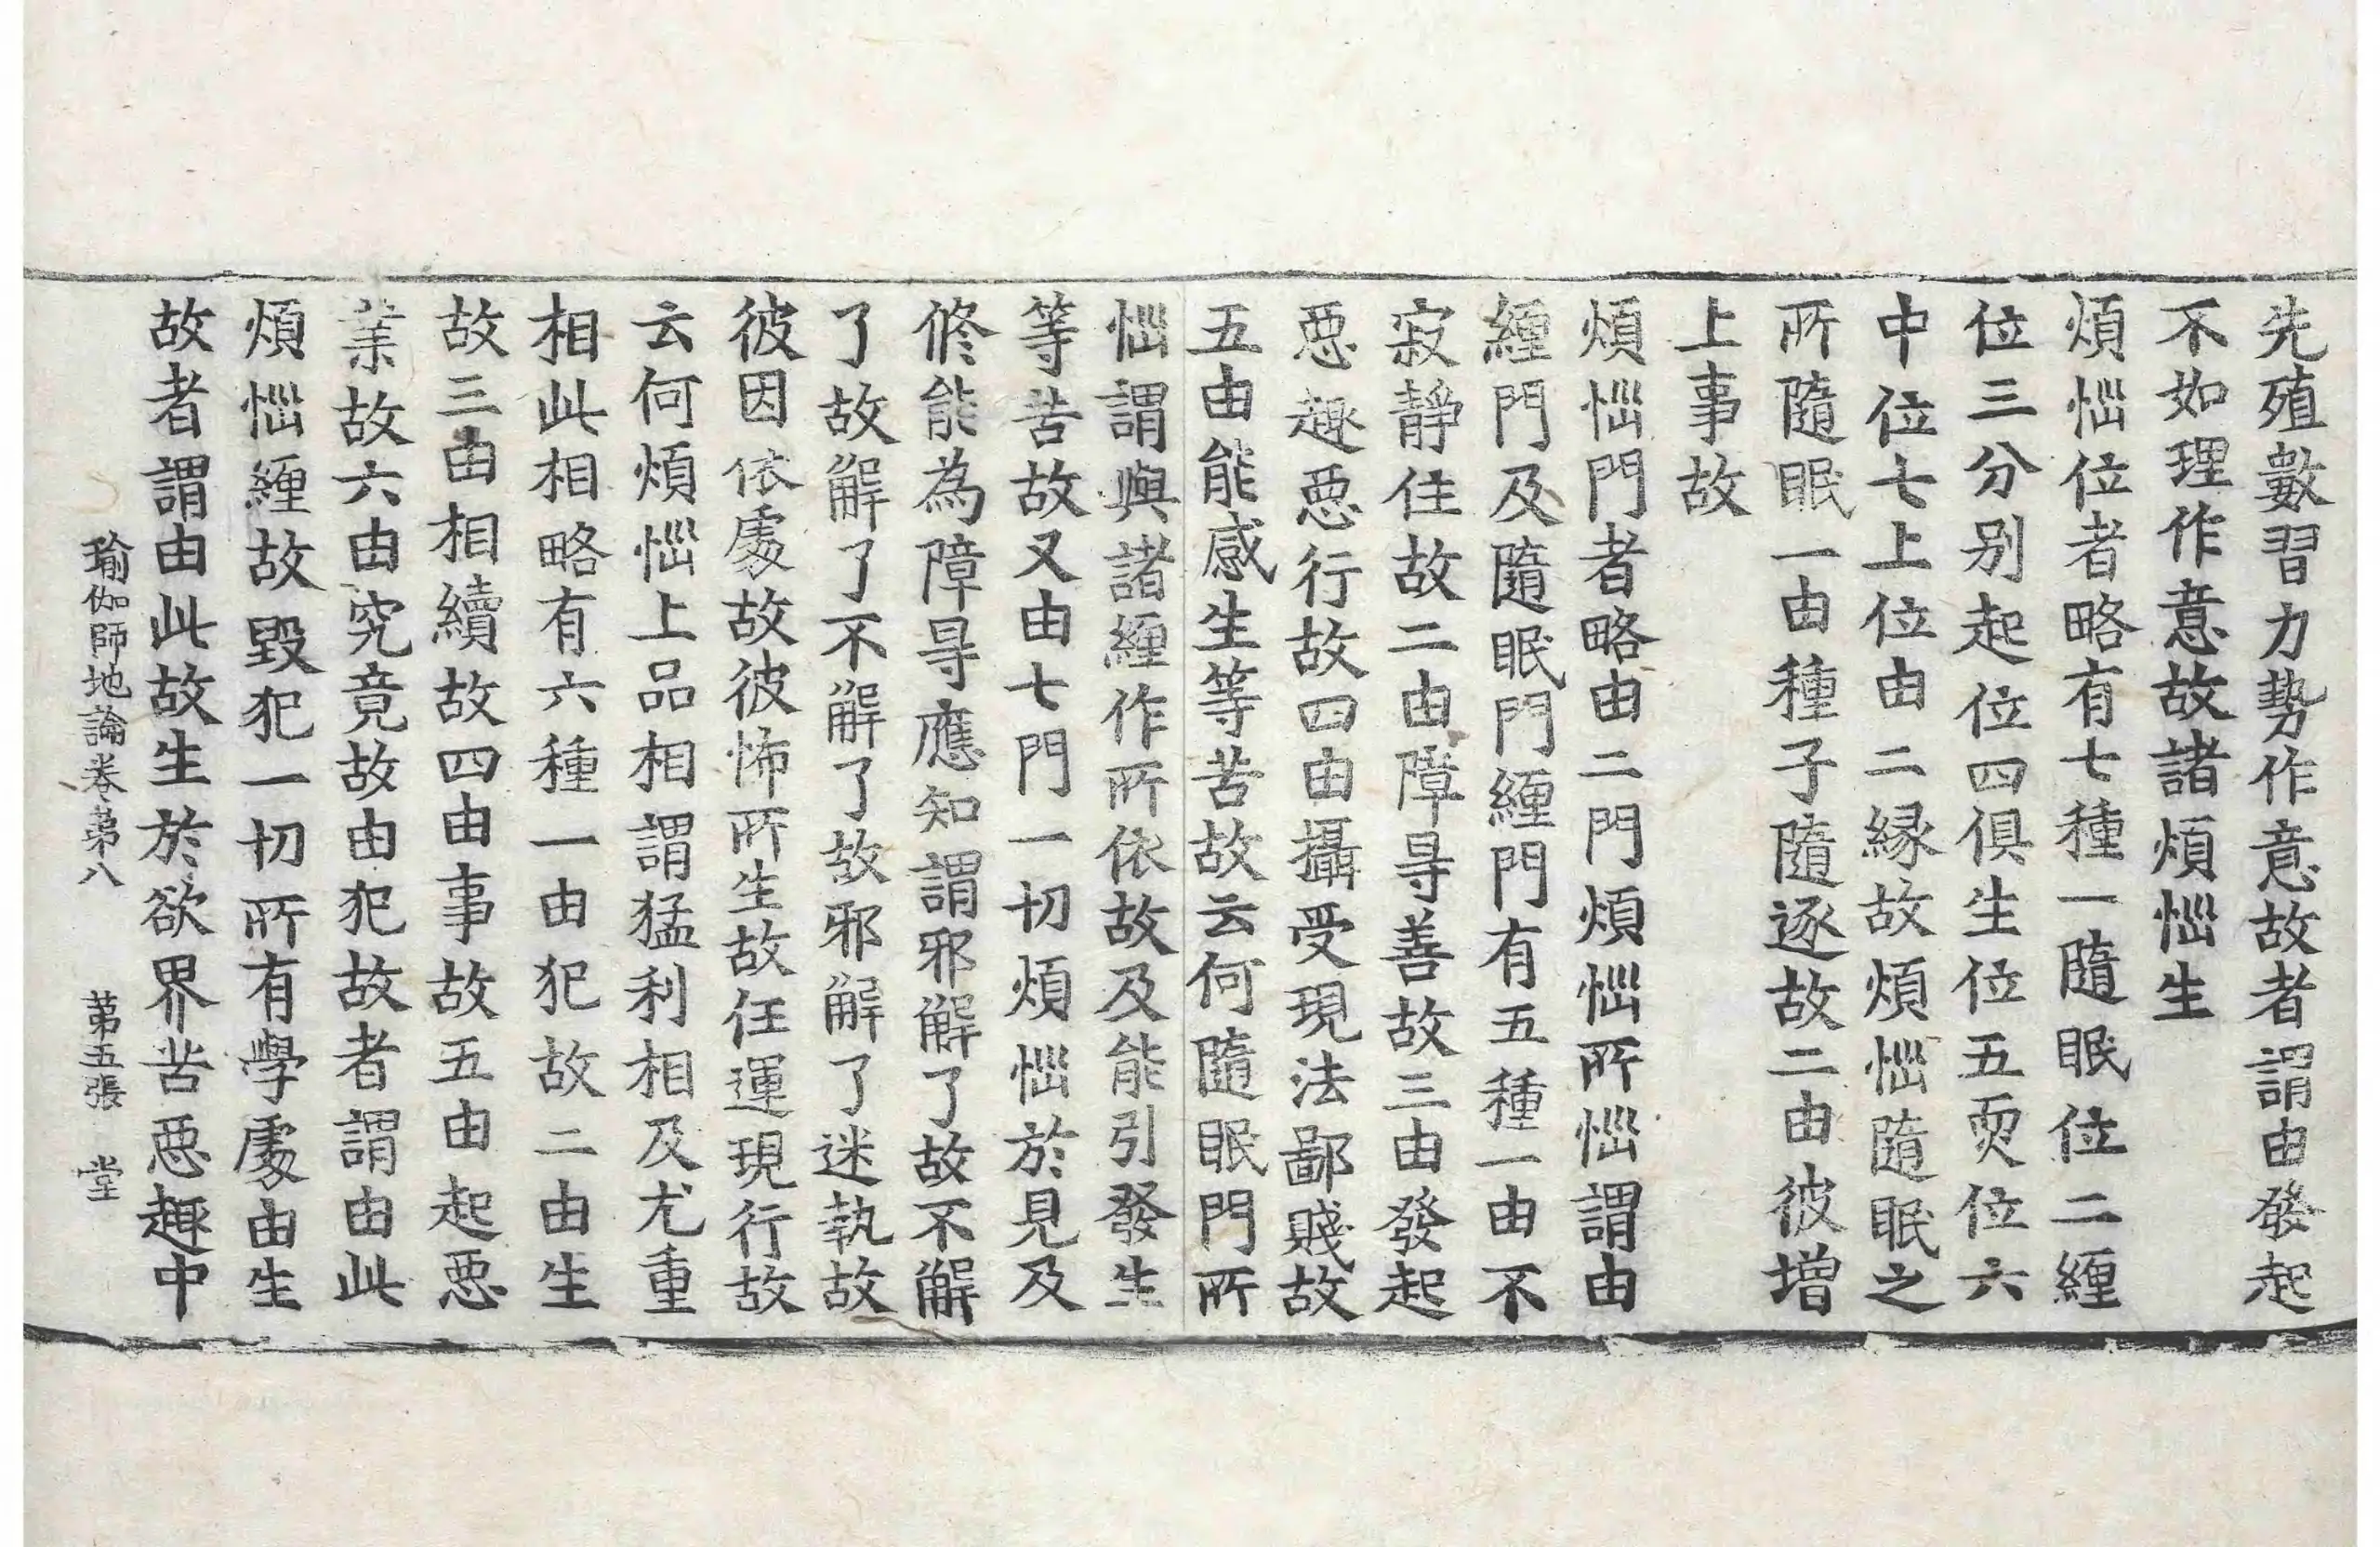 先殖數習力勢作意故者謂由發起
不如理作意故諸煩惱生
煩惱位者略有七種一隨眠位二纏
位三分别起位四俱生位五耎位六
中位七上位由二縁故煩惱隨眠之
所隨眠一由種子隨逐故二由彼增
上事故
煩惱門者略由二門煩惱所惱謂由
纏門及隨眠門纏門有五種一由不
寂靜住故二由障㝵善故三由發起
惡趣惡行故四由攝受現法鄙賤故
五由能感生等苦故云何隨眠門所
惱謂與諸纏作所依故及能引發生
等苦故又由七門一切煩惱於見及
修能為障㝵應知謂邪解了故不解
了故解了不解了故邪解了迷執故
彼因依處故彼怖所生故任運現行故
云何煩惱上品相謂猛利相及尤重
相此相略有六種一由犯故二由生
故三由相續故四由事故五由起惡
業故六由究竟故由犯故者謂由此
煩惱纏故毀犯一切所有學處由生
故者謂由此故生於欲界苦惡趣中
瑜伽師地論卷苐八 苐五張 堂